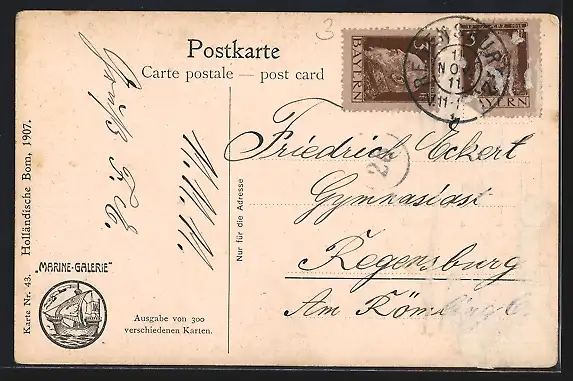 3
Postkarte
Carte postale — post card
BAYERN
BAYERN
REGENSBURG
11
NOV
11
24
Friedrich Eckert
Gymnasiast
Regensburg
Am Römling
Nur für die Adresse
Gruß F. E.
11. 11. 11.
Karte Nr. 43. Holländische Bom, 1907.
„MARINE-GALERIE"
Ausgabe von 300
verschiedenen Karten.